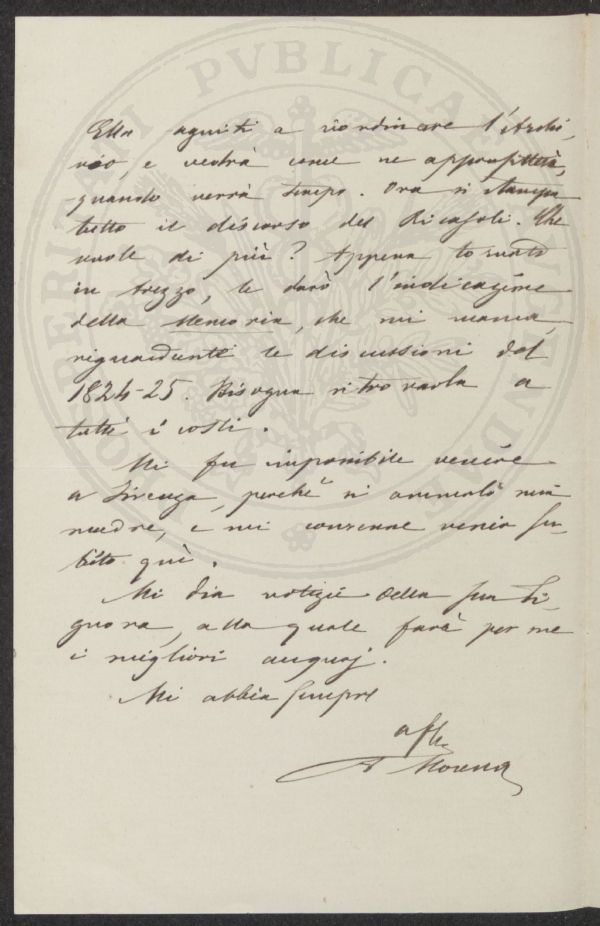 Ella aguiti a riordinare l'Archi,
vio, e vedrà come ne approfitterà,
quando verrà tempo. Ora si stampa
tutto il discorso del Ricasoli. Che
vuole di più? Appena tornato
in Arezzo, le darò l'indicazione
della Memoria, che mi manca,
riguardante le discussioni del
1824-25. Bisogna ritrovarla a
tutti i costi.
Mi fu impossibile venire
a Firenze, perchè si ammalò mia
madre, e mi convenne venir su-
bito quì.
Mi dia notizie della sua Si-
gnora, alla quale farà per me
i migliori augurj.
Mi abbia sempre
aff.
A Morena
PVBLICA